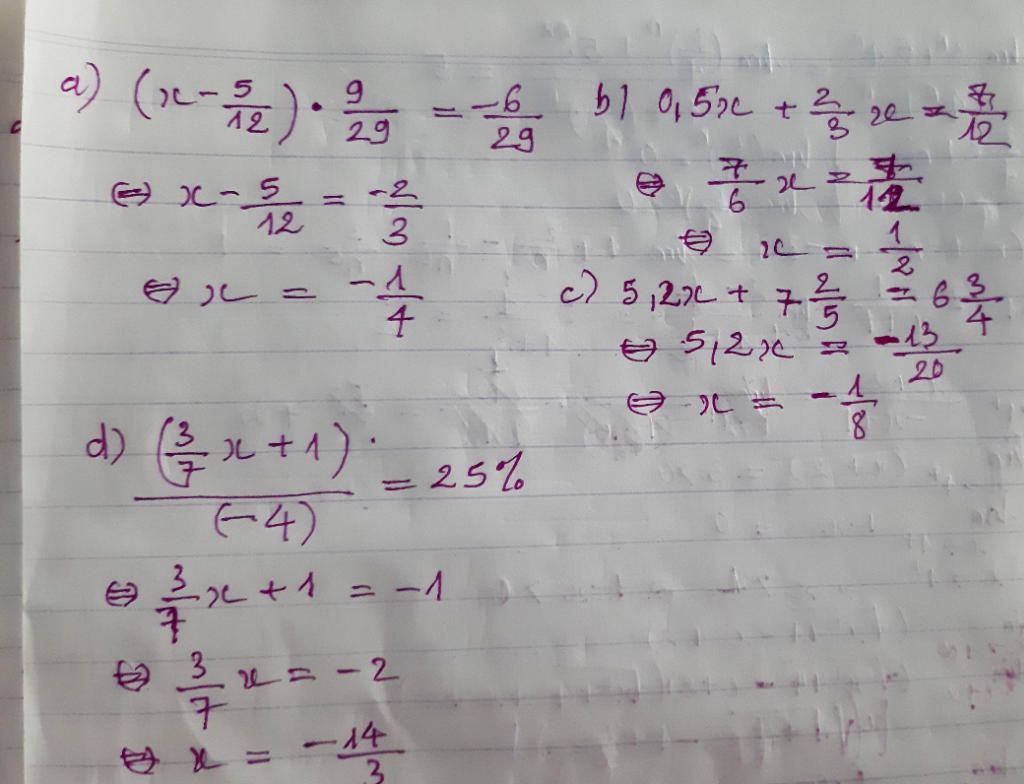 a) (x - 5/12) . 9/29 = -6/29
⇔ x - 5/12 = -2/3
⇔ x = -1/4
b) 0,5x + 2/3 x = 7/12
⇔ 7/6 x = 7/12
⇔ x = 1/2
c) 5,2x + 7 2/5 = 6 3/4
⇔ 5,2x = -13/20
⇔ x = -1/8
d) (3/7 x + 1) / (-4) = 25%
⇔ 3/7 x + 1 = -1
⇔ 3/7 x = -2
⇔ x = -14/3